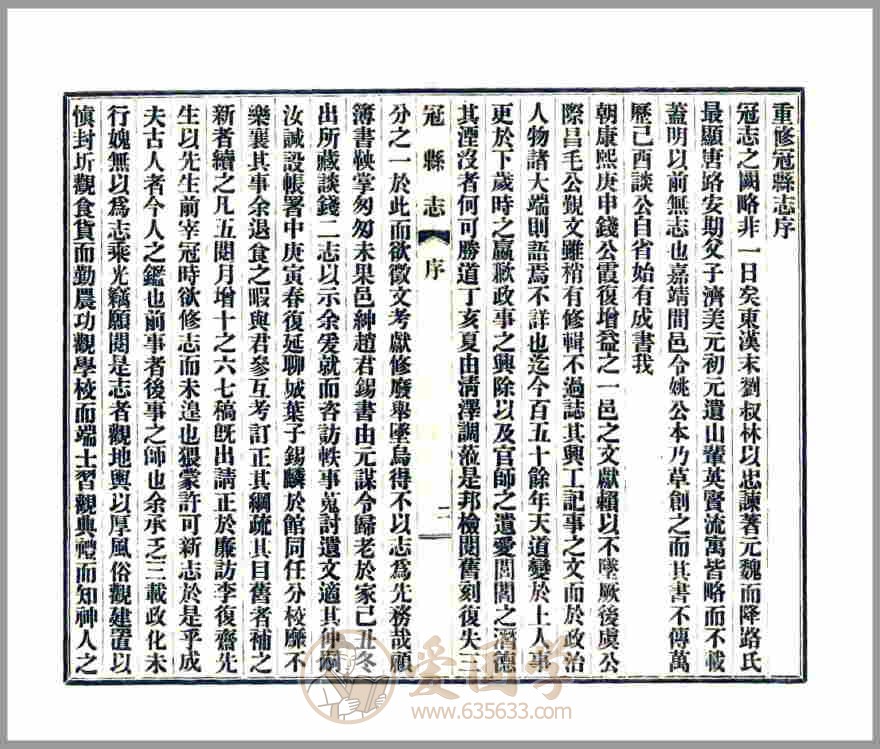 重修冠縣志序
冠志之闕略非一日矣東漢末劉叔林以忠諫著元魏而降路氏
最顯唐路安期父子濟美元初元遺山輩英賢流寓皆略而不載
蓋明以前無志也嘉靖間邑令姚公本乃草創之而其書不傳萬
歷己酉談公自省始有成書我
朝康熙庚申錢公霞復增益之一邑之文獻賴以不墜厥後虞公
際昌毛公覲文雖稍有修輯不過誌其興工記事之文而於政治
人物諸大端則語焉不詳也迄今百五十餘年天道變於上人事
更於下歲時之贏歉政事之興除以及官師之遺愛閭閻之潛德
其湮沒者何可勝道丁亥夏由清澤調蒞是邦檢閱舊刻復失三
冠縣志
序
二
分之一於此而欲徵文考獻修廢舉墜烏得不以志為先務哉顧
簿書鞅掌匆匆未果邑紳趙君錫書由元謀令歸老於家己丑冬
出所藏談錢二志以示余爰就而咨訪軼事蒐討遺文適其仲嗣
汝誠設帳署中庚寅春復延聊城葉子錫麟於館同任分校靡不
樂襄其事余退食之暇與君參互考訂正其綱疏其目舊者補之
新者續之凡五閱月增十之六七稿既出請正於廉訪李復齋先
生以先生前宰冠時欲修志而未遑也猥蒙許可新志於是乎成
夫古人者今人之鑑也前事者後事之師也余承乏三載政化未
行媿無以為志乘光竊願閱是志者觀地輿以厚風俗觀建置以
愼封圻觀食貨而勤農功觀學校而端士習觀典禮而知神人之
爱国学
www.635633.com